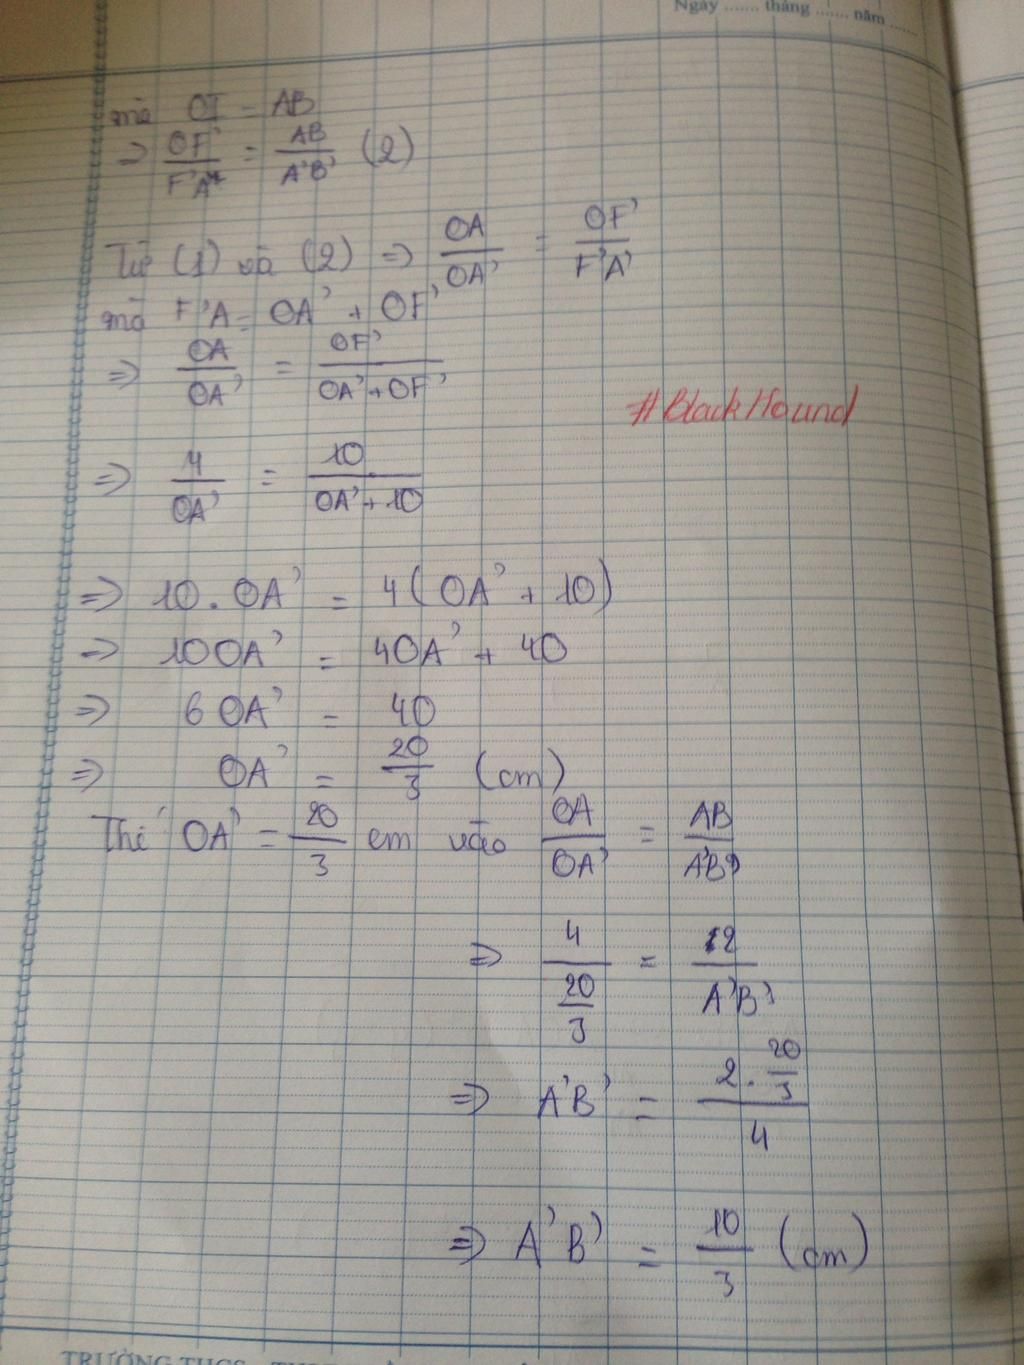 Ngày ....... tháng ....... năm .......
mà OI = AB
=> OF'/F'A' = AB/A'B' (2)
Từ (1) và (2) => OA/OA' = OF'/F'A'
mà F'A = OA' + OF'
=> OA/OA' = OF'/OA'+OF'
#BlackHound
=> 4/OA' = 10/OA'+10
=> 10.OA' = 4(OA' + 10)
=> 10OA' = 4OA' + 40
=> 6OA' = 40
=> OA' = 20/3 (cm)
Thế OA' = 20/3 cm vào OA/OA' = AB/A'B'
=> 4/(20/3) = 2/A'B'
=> A'B' = 2.(20/3)/4
=> A'B' = 10/3 (cm)
TRƯỜNG THCS